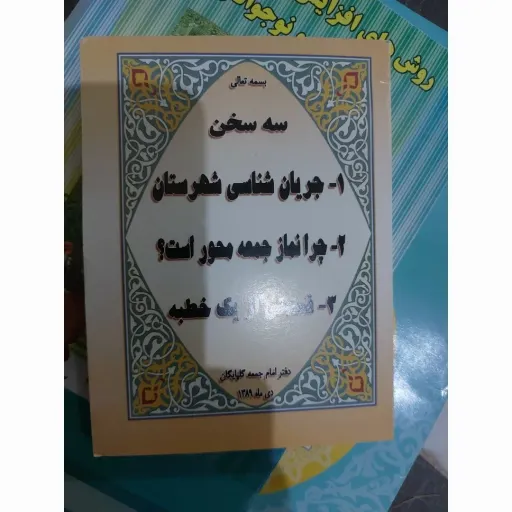 روش های افزایش
و نوجوانان
بسمه تعالی
سه سخن
۱- جریان شناسی شهرستان
۲- چرا نماز جمعه محور است؟
۳- یک خطبه
دفتر امام جمعه گلپایگان
دی ماه ۱۳۸۹